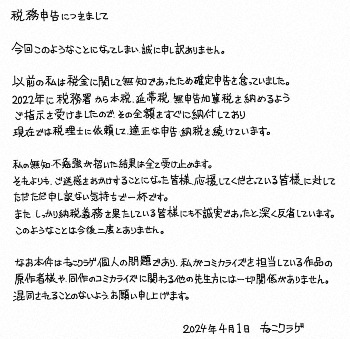 税務申告につきまして
今回このようなことになってしまい誠に申し訳ありません。
以前の私は税金に関して無知であったため確定申告を怠っていました。
2022年に税務署から本税、延滞税、無申告加算税を納めるよう
ご指示を受けましたので、その全額をすぐに納付しており
現在では税理士に依頼して、適正な申告、納税を続けています。
私の無知不勉強が招いた結果は全て受け止めます。
それよりも、ご迷惑をおかけすることになった皆様、応援してくださっている皆様に対して
ただただ申し訳ない気持ちで一杯です。
また しっかり納税義務を果たしている皆様にも不誠実であったと深く反省しています。
このようなことは今後二度とありません。
なお本件はねこクラゲ個人の問題であり、私がコミカライズを担当している作品の
原作者様や、同作のコミカライズに関わる他の先生方には一切関係がありません。
混同されることのないよう、お願い申し上げます。
2024年4月1日 ねこクラゲ